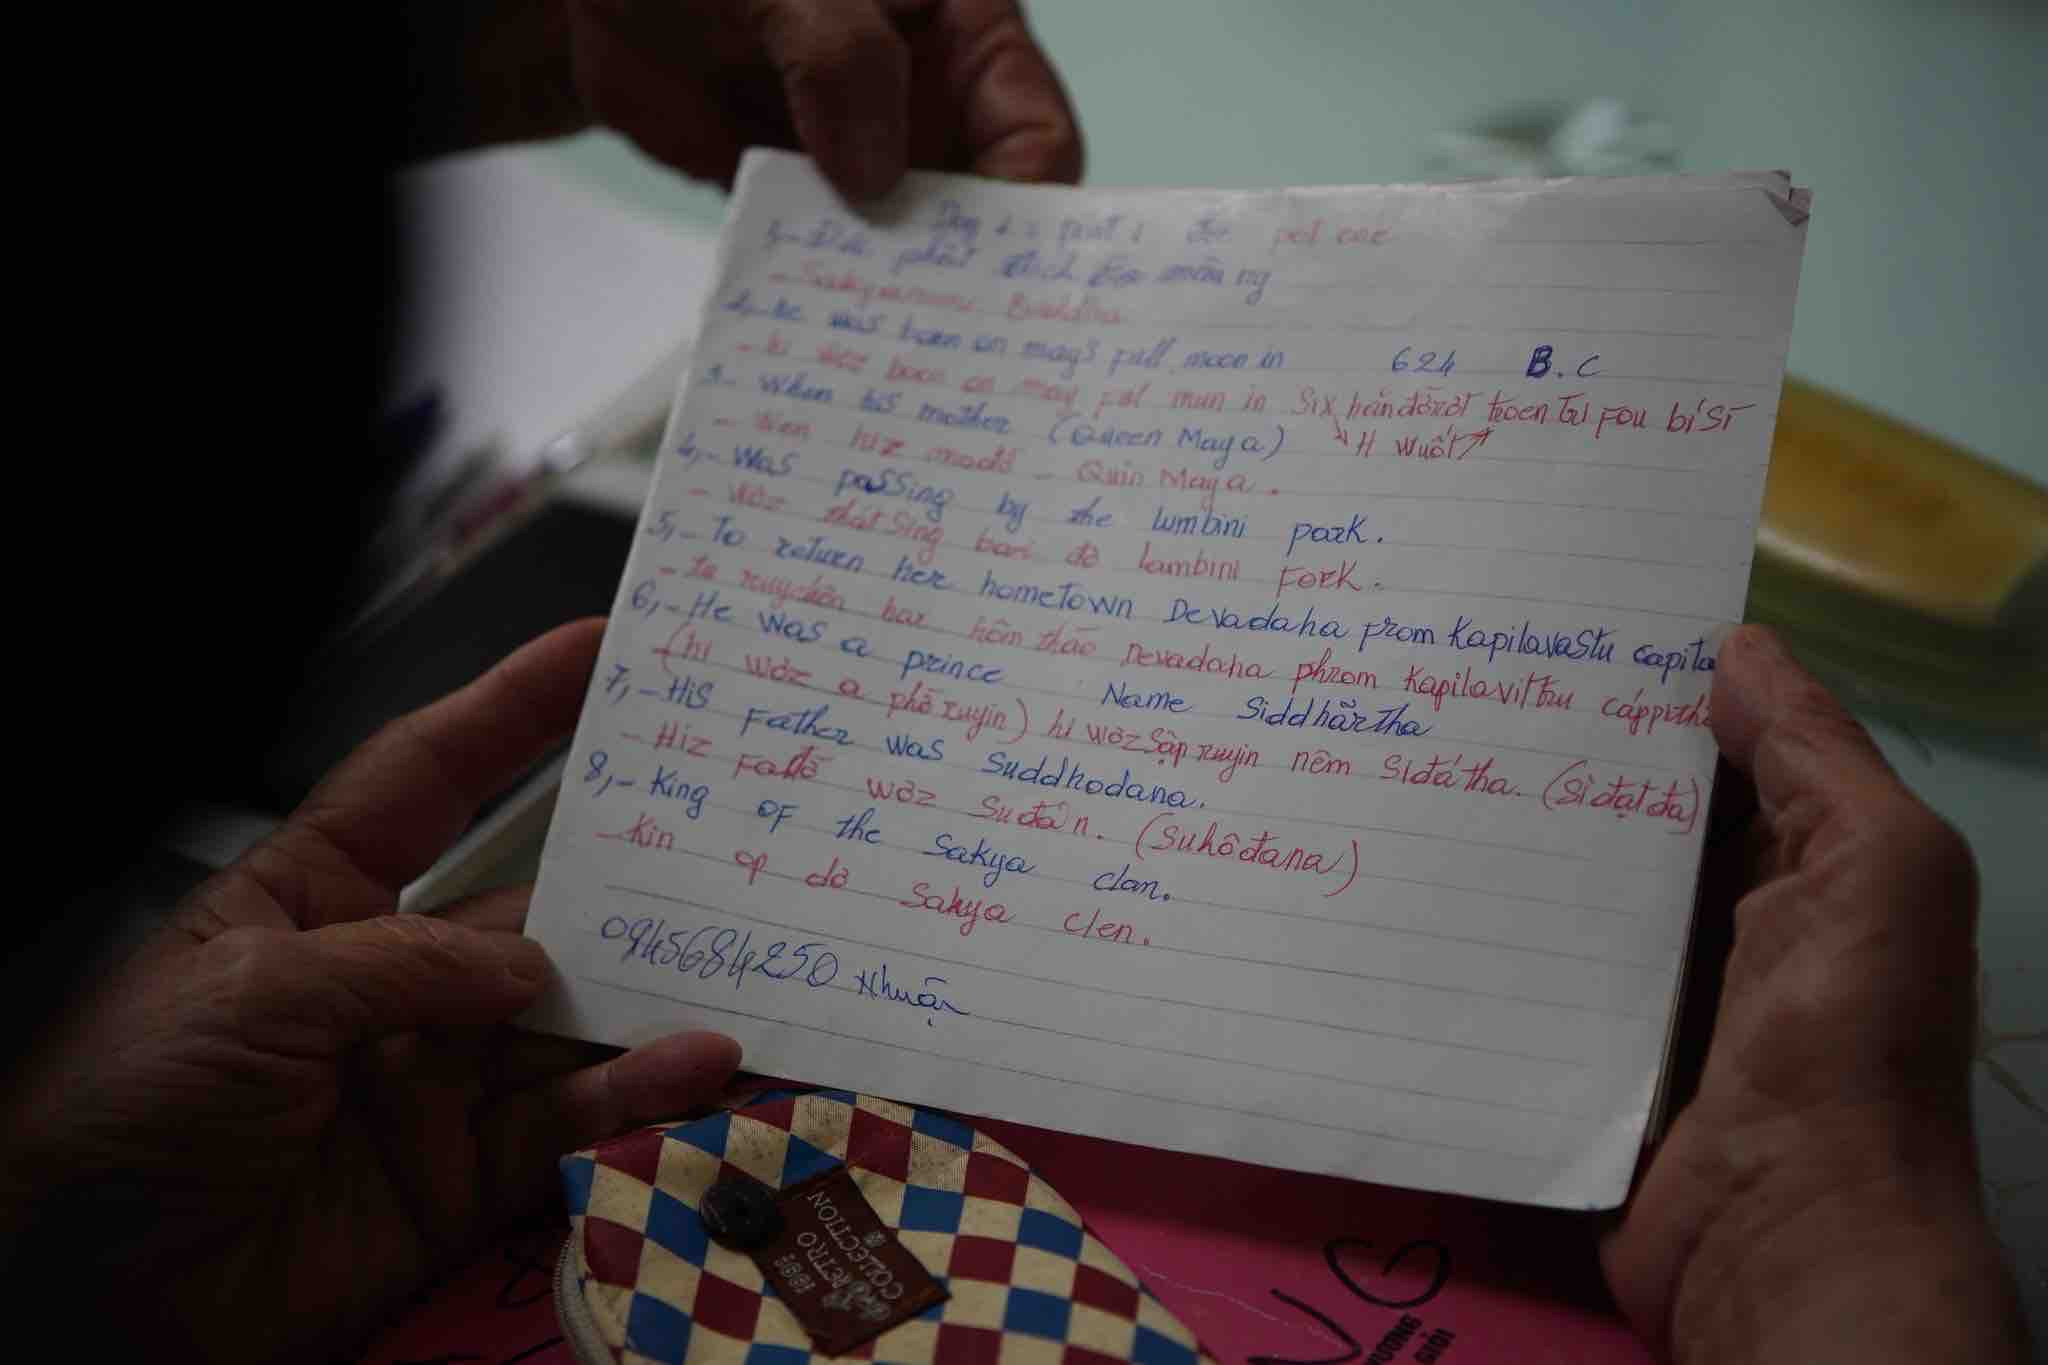 Đức phật thích
Sakyamuni Buddha
2,- He was born on may's full moon in 624 B.C
- hi woz boon on may ful mun in Six hânđờrớt toen tu Fou bí Sĩ
H Wuốt
3,- When his mother (Queen Maya)
- Wen hiz mođờ - Quin Maya.
4,- Was passing by the lumbini park.
- Wơz phát Sing bai đờ lambini Fork.
5,- To return her hometown Devadaha from Kapilavastu capita
- tu ruychơn har hôm thão Devadaha phrom Kapilavittu
6,- He was a prince Name Siddhārtha
- (hi wơz a phờ ruyin) hi wơz Sập ruyin nêm Siđátha. (Sì đạt đa)
7,- His Father was Suddhodana.
- Hiz Fađờ wơz Suđán. (Suhôđana)
8,- King of the Sakya clan.
- Kin op đờ Sakya clen.
0945684250 Nhuận
1998
RETRO
COLLECTION
VG
VƯƠNG
GIỎI